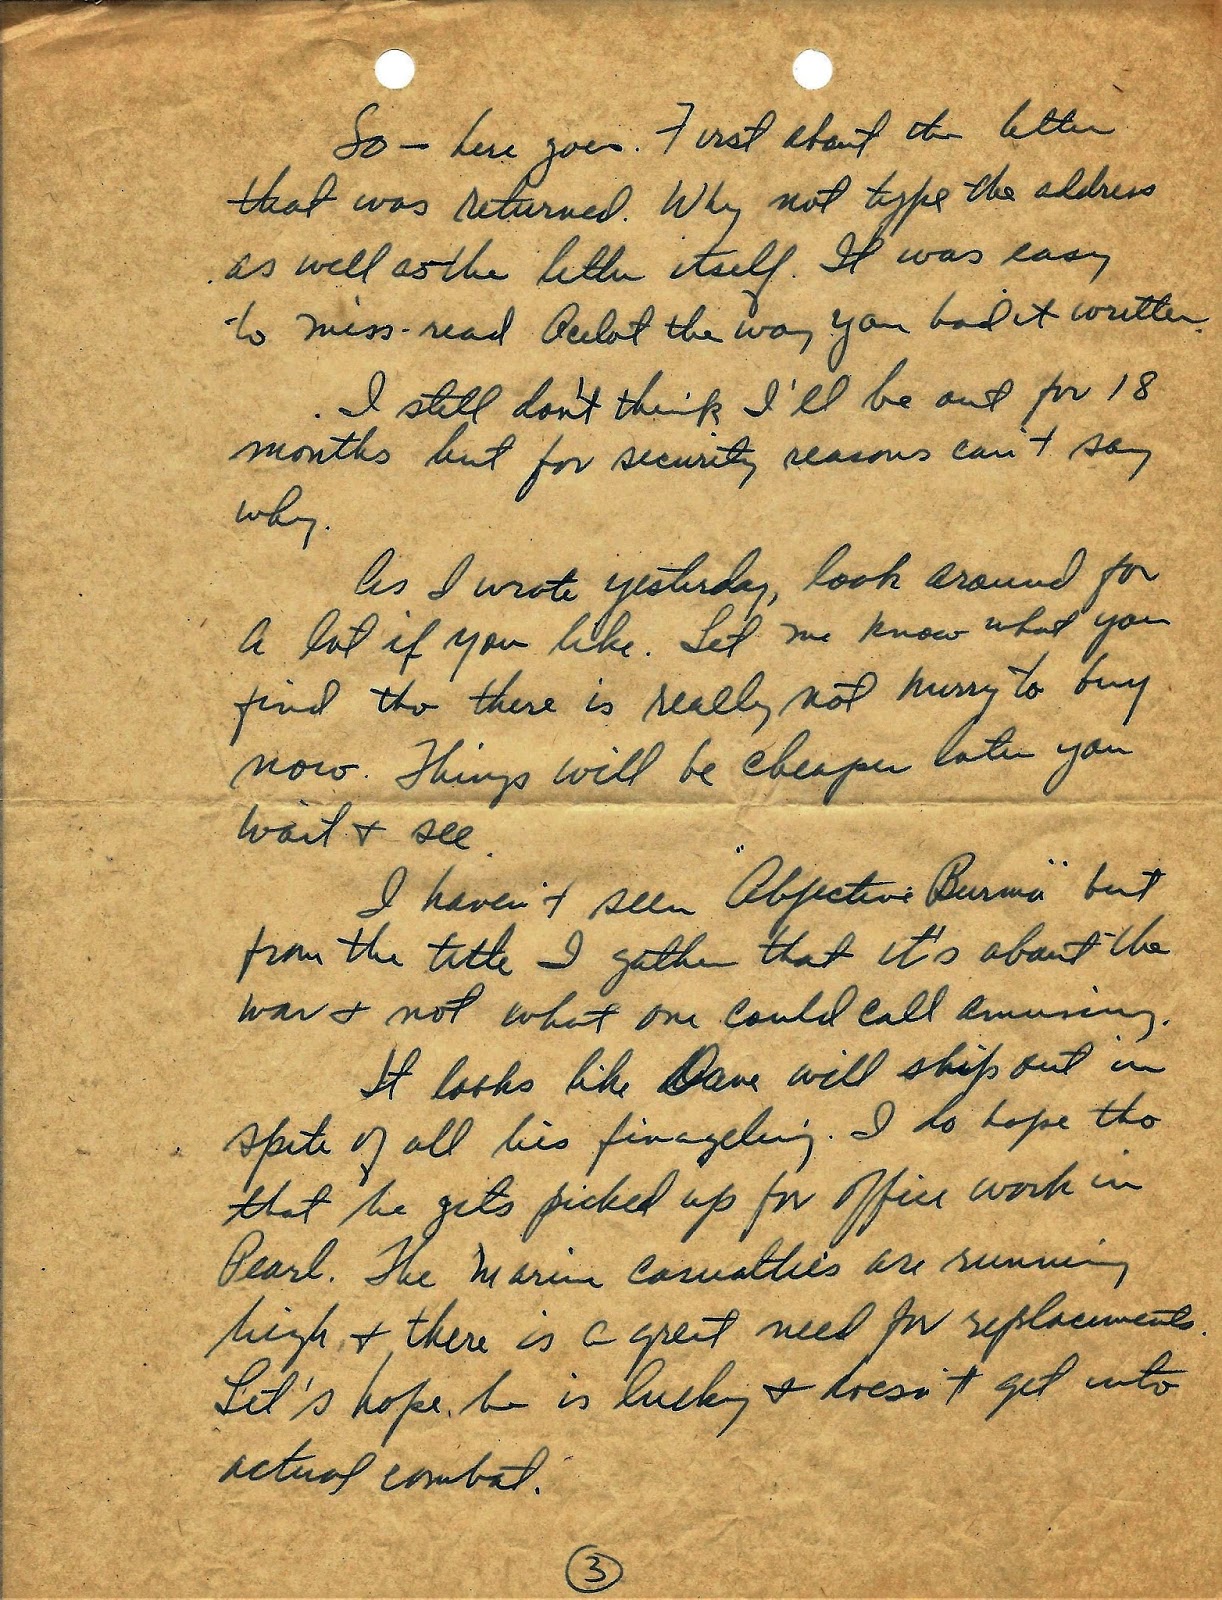 So — here goes. First about the letter
that was returned. Why not type the address
as well as the letter itself. It was easy
to miss-read Acelot the way you had it written.
I still don't think I'll be out for 18
months but for security reasons can't say
why.
As I wrote yesterday, look around for
a lot if you like. Let me know what you
find tho there is really not hurry to buy
now. Things will be cheaper later you
wait + see.
I haven't seen "Objective Burma" but
from the title I gather that it's about the
war + not what one could call amusing.
It looks like Dave will ship out in
spite of all his finageling. I do hope tho
that he gets picked up for office work in
Pearl. The Marine casualties are running
high + there is a great need for replacements.
Let's hope he is lucky + doesn't get into
actual combat.
3